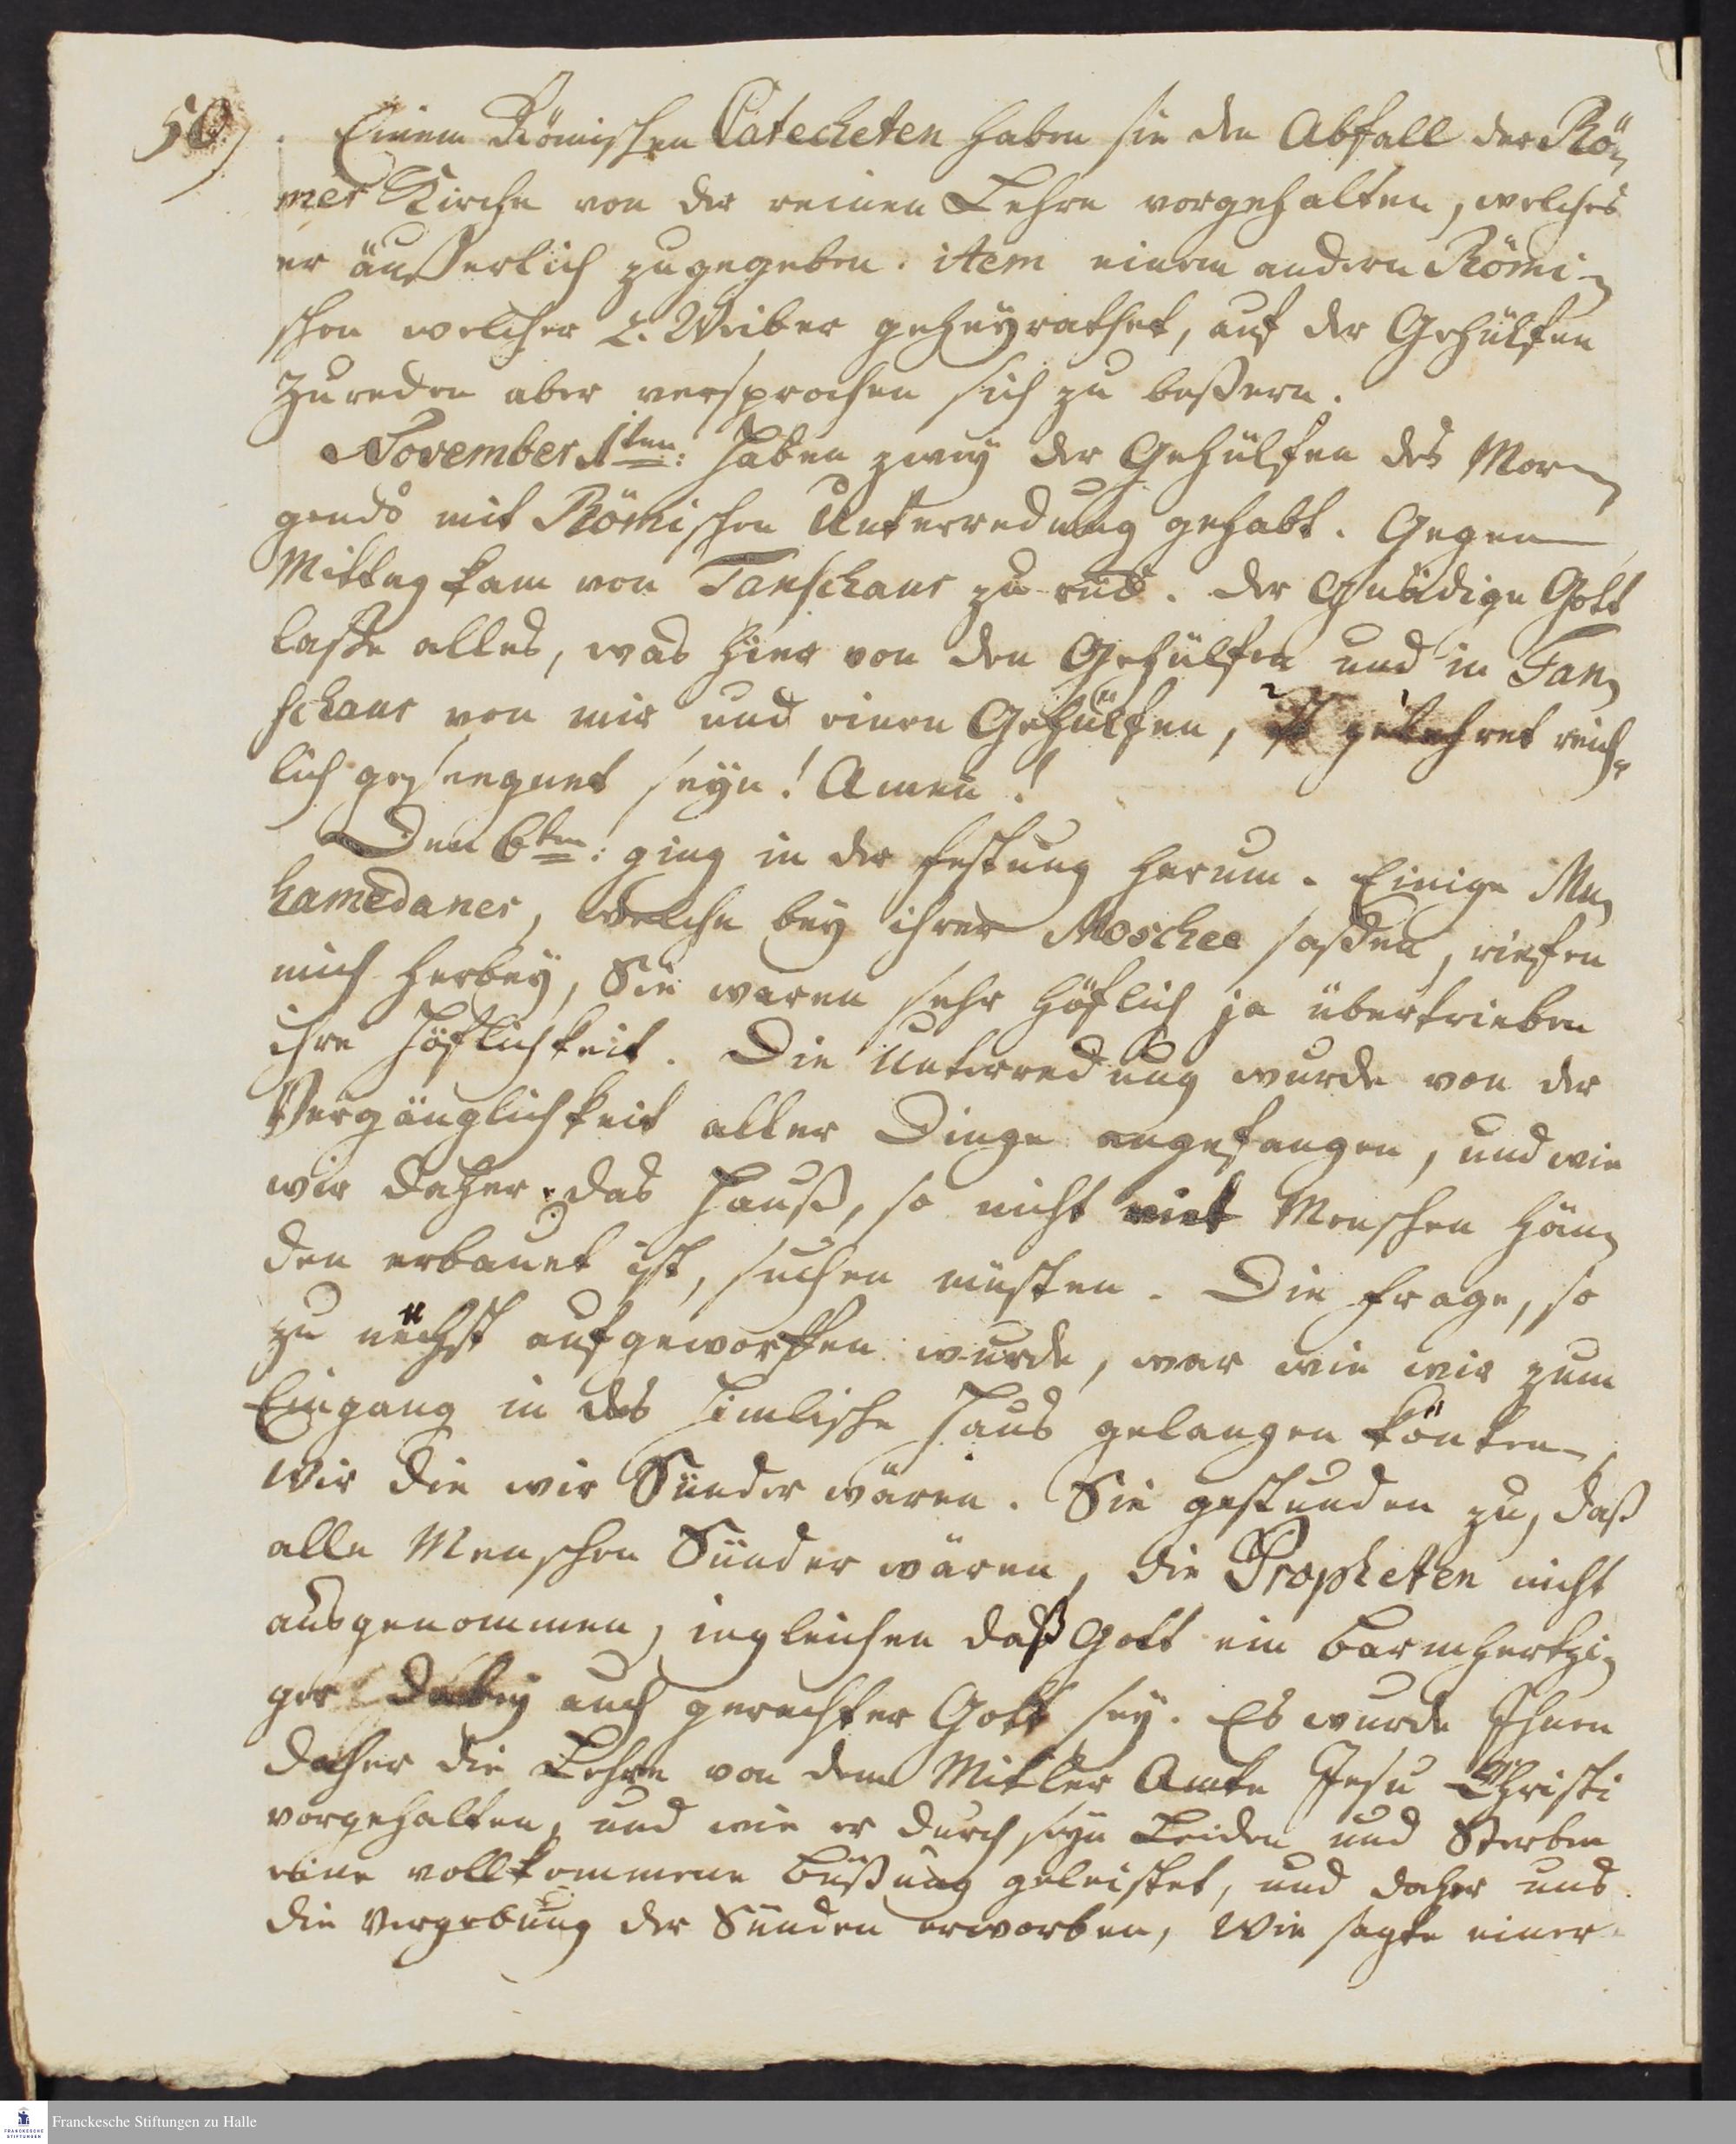 50)
Einem Römischen Catecheten haben sie den Abfall der Rö-
mer Kirche von der reinen Lehre vorgehalten, welches
er äußerlich zugegeben. item einem andern Römi-
schen welcher 2. Weiber geheyrathet, auf der Gehülfen
Zureden aber versprochen sich zu beßern.
November 1ten: haben zwey der Gehülfen des Mor-
gends mit Römischen Unterredung gehabt. Gegen
Mittag kam von Tanschaur zurück. Der Gnädige Gott
laße alles, was hier von den Gehülfen und in Tan-
schaur von mir und einen Gehülfen, gelehret reich-
lich geseegnet seyn! Amen!
Den 6ten: ging in der Festung herum. Einige Mu-
hamedaner, welche bey ihrer Moschee saßen, riefen
mich herbey, Sie waren sehr höflich ja übertrieben
ihre Höflichkeit. Die Unterredung wurde von der
Vergänglichkeit aller Dinge angefangen, und wie
wir daher das Hauß, so nicht mit Menschen Hän-
den erbauet ist, suchen müsten. Die Frage, so
zu nächst aufgeworffen wurde, war wie wir zum
Eingang in das Himlische Haus gelangen könten,
Wir die wir Sünder wären. Sie gestunden zu, daß
alle Menschen Sünder wären, die Propheten nicht
ausgenommen, ingleichen daß Gott ein barmhertzi-
ger dabey auch gerechter Gott sey. Es wurde Ihnen
daher die Lehre von dem Mittler Amte Jesu Christi
vorgehalten, und wie er durch seyn Leiden und Sterben
eine vollkommene Büßung geleistet, und daher uns
die Vergebung der Sünden erworben, Wie sagte einer
Franckesche Stiftungen zu Halle
FRANCKESCHE
STIFTUNGEN